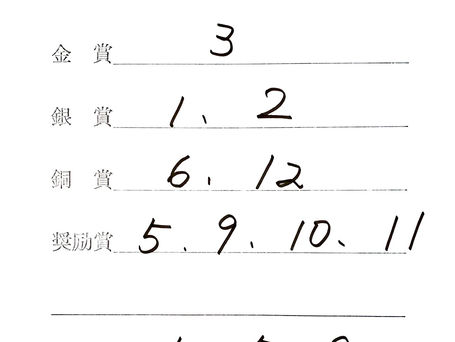 金賞 3
銀賞 1、2
銅賞 6、12
奨励賞 5、9、10、11